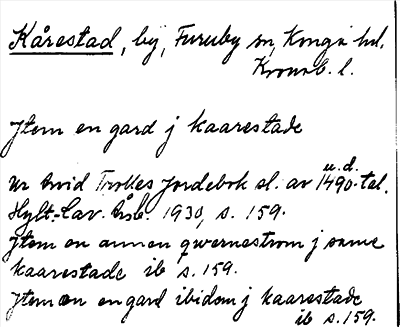 Kårestad, by, Furuby sn, Konga hd.
Kronob. l.
Jtem en gard j kaarestade
u.d.
ur Arvid Trolles Jordebok sl. av 1490-tal.
Hylt.-Cav. Årsb. 1930, s. 159.
Jtem en annen qwernestrom j samme
kaarestade ib s. 159.
Jtem en en gard ibidom j kaarestade
ib s. 159.